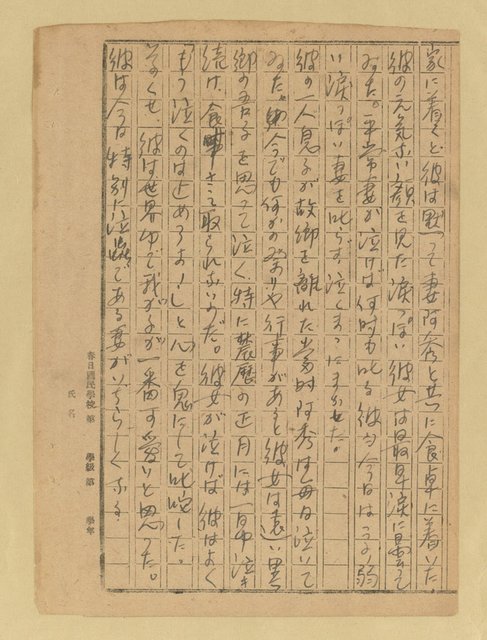 家に着くと彼は黙って妻阿秀と共に食卓に着いた。
彼の元気ない顔を見た涙っぽい彼女は最早涙に暮れて
ゐた。平常妻が泣けば何時も叱る彼が今日はつい弱
い涙っぽい妻を叱らず泣くまゝにまかせた。
彼の一人息子が故郷を離れた当時阿秀は毎日泣いて
ゐた。今でも何かの祭りや行事があると彼女は遠い異
郷の吾子を思って泣く特に農暦の正月には一日中泣き
続け、食事さえ取られないのだ。彼女が泣けば彼はよく
「もう泣くのは止めろよ!」と心を鬼にして叱咤した。
そのくせ、彼は世界中で我が子が一番可愛いと思った。
彼は今日特別に泣虫である妻がいぢらしくなる
春日國民學校 第　學級 第　學年
氏名